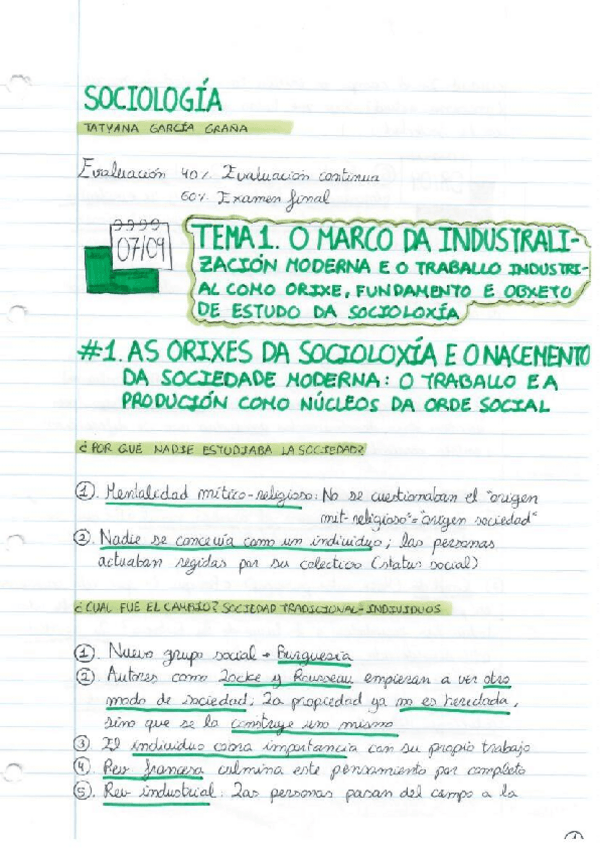 SOCIOLOGÍA
TATYANA GARCÍA GRAÑA
Evaluación 40% Evaluación continua
60% Examen final
07/09
TEMA 1. O MARCO DA INDUSTRALI-
ZACIÓN MODERNA E O TRABALLO INDUSTRI-
AL COMO ORIXE, FUNDAMENTO E OBXETO
DE ESTUDO DA SOCIOLOXÍA
#1. AS ORIXES DA SOCIOLOXÍA E O NACEMENTO
DA SOCIEDADE MODERNA: O TRABALLO E A
PRODUCIÓN COMO NÚCLEOS DA ORDE SOCIAL
¿POR QUÉ NADIE ESTUDIABA LA SOCIEDAD?
①. Mentalidad mítico-religioso: No se cuestionaban el "origen
mit-religioso"="origen sociedad"
②. Nadie se concevía como un individuo; las personas
actuaban regidas por su colectivo (status social)
¿CUAL FUE EL CAMBIO? SOCIEDAD TRADICIONAL-INDIVIDUOS
①. Nuevo grupo social → Burguesía
②. Autores como Locke y Rousseau empiezan a ver otro
modo de sociedad. La propiedad ya no es heredada,
sino que se la construye uno mismo
③ El individuo cobra importancia con su propio trabajo
④. Rev francesa culmina este pensamiento por completo
⑤. Rev industrial: Las personas pasan del campo a la
①